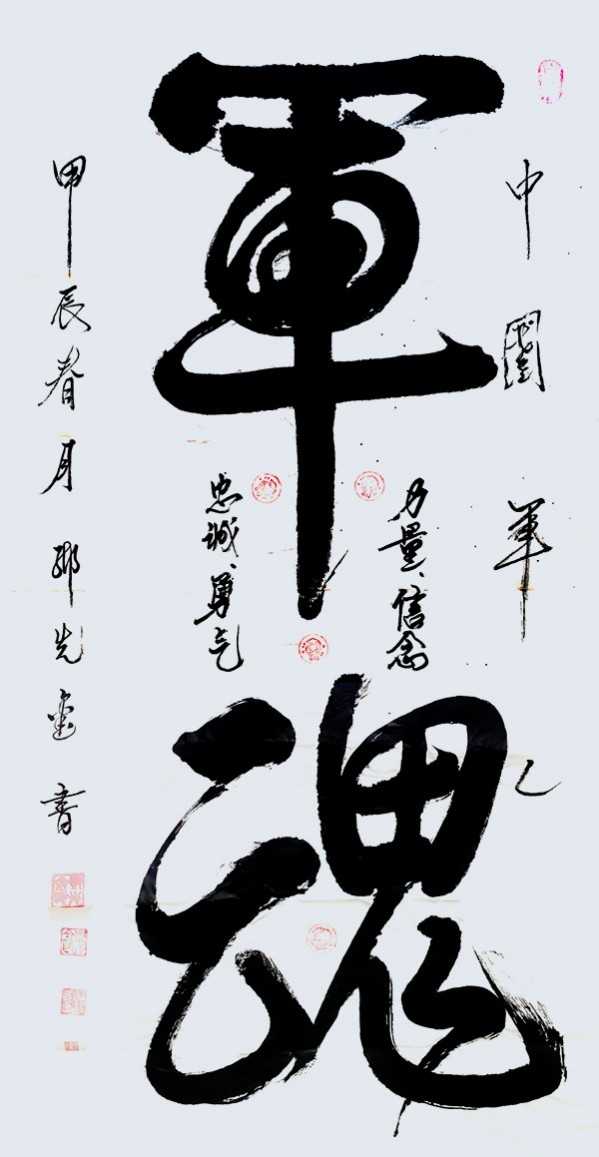 中國軍之
軍魂
力量、信念
忠誠、勇气
甲辰春月鄉先金書